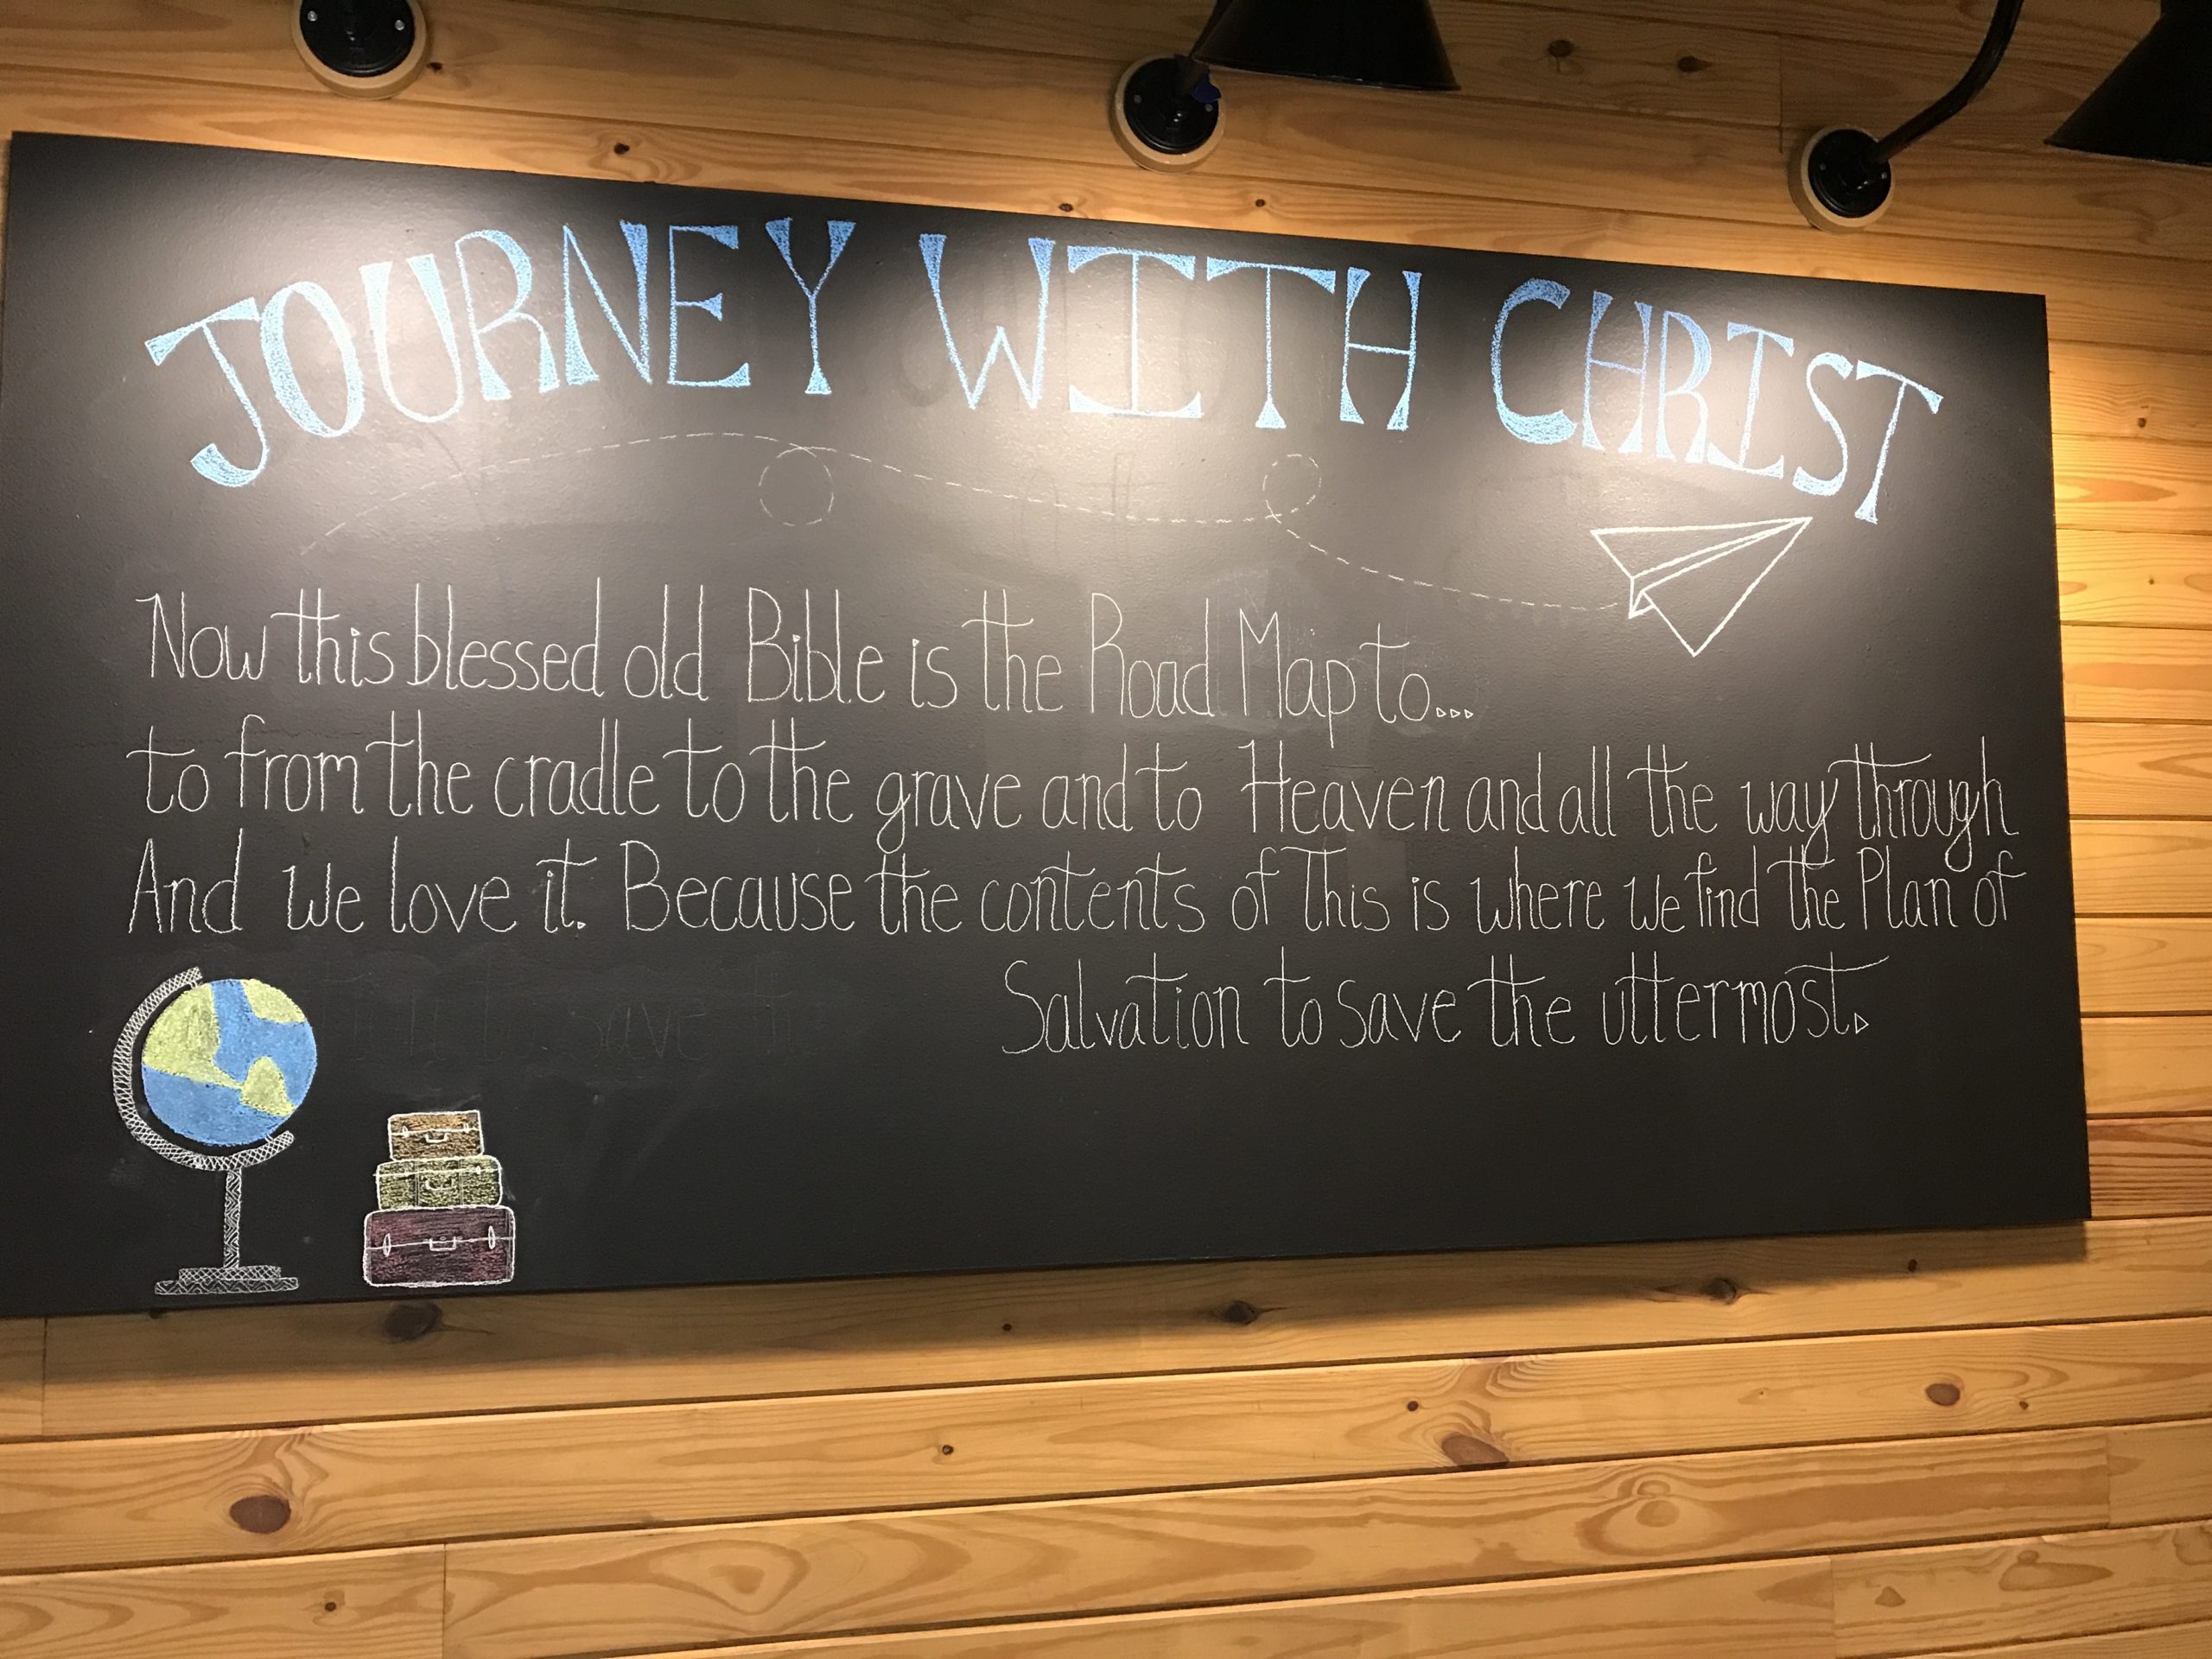 JOURNEY WITH CHRIST
Now this blessed old Bible is the Road Map to...
to from the cradle to the grave and to Heaven and all the way through
And We love it. Because the contents of This is where We find the Plan of
Salvation to save the uttermost.